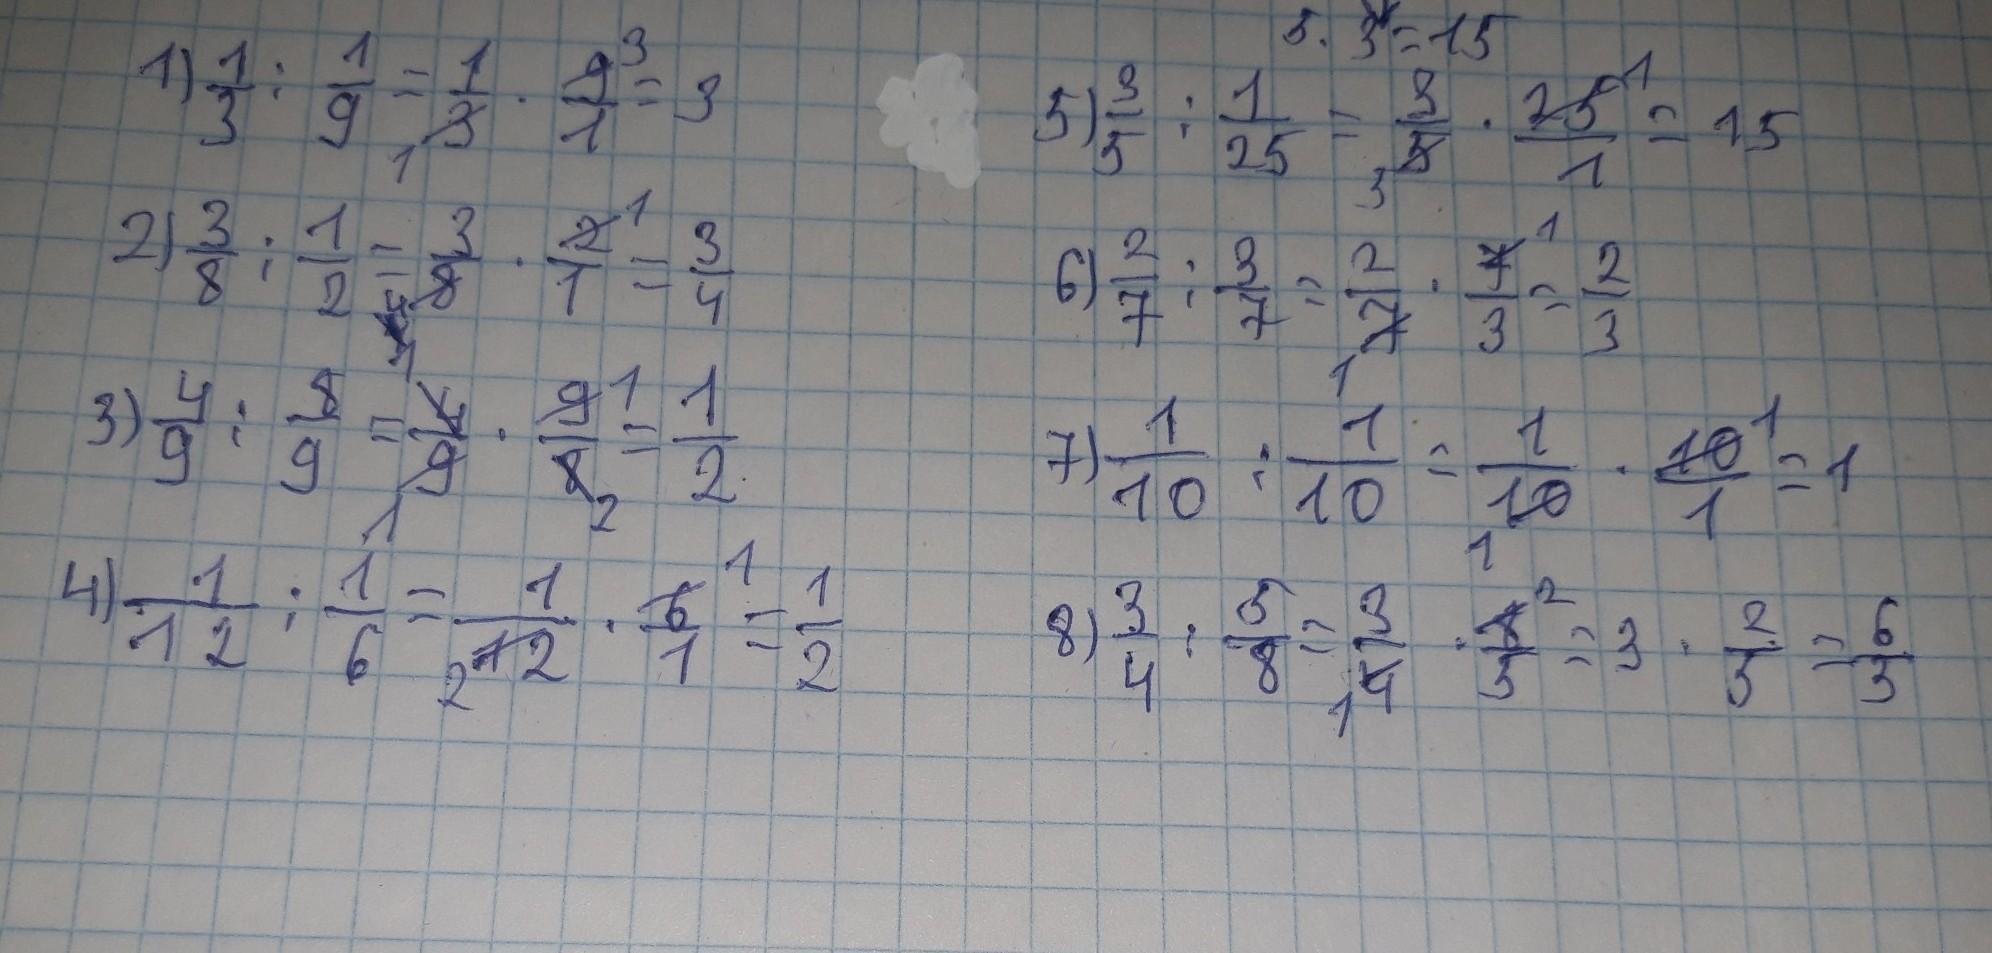 1) 1/3 : 1/9 = 1/3 · 9/1 = 3
1
3
2) 3/8 : 1/2 = 3/8 · 2/1 = 3/4
4
1
3) 4/9 : 8/9 = 4/9 · 9/8 = 1/2
1
1
1
2
4) 1/12 : 1/6 = 1/12 · 6/1 = 1/2
2
1
5 · 3 = 15
5) 3/5 : 1/25 = 3/5 · 25/1 = 15
3
1
6) 2/7 : 3/7 = 2/7 · 7/3 = 2/3
1
1
7) 1/10 : 1/10 = 1/10 · 10/1 = 1
1
1
8) 3/4 : 5/8 = 3/4 · 8/5 = 3 · 2/5 = 6/5
1
2